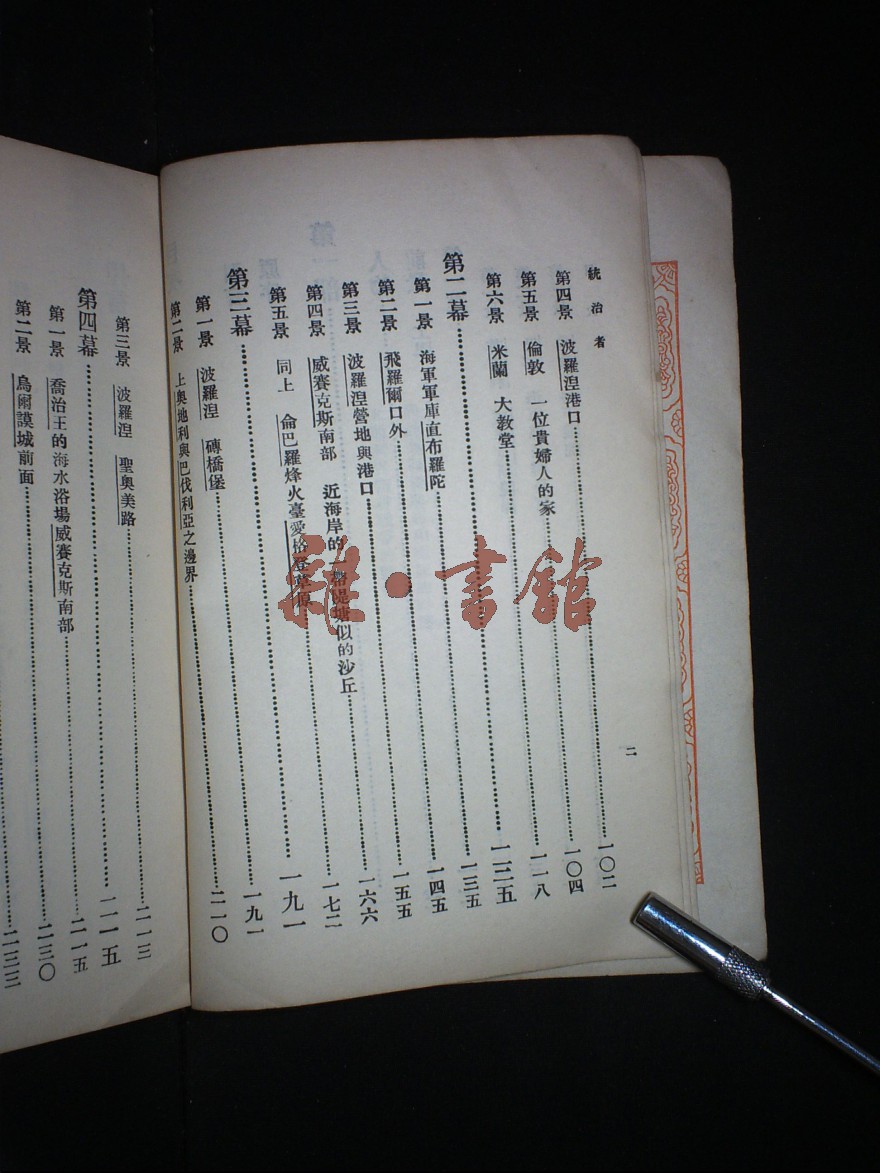 統治者
第四景 波羅涅港口……一〇二
第五景 倫敦 一位貴婦人的家……一〇四
第六景 米蘭 大教堂……一一八
第二幕……一二五
第一景 海軍軍庫直布羅陀……一三五
第二景 飛羅爾口外……一四五
第三景 波羅涅營地與港口……一五五
第四景 威賽克斯南部 近海岸的 似的沙丘……一六六
第五景 同上 侖巴羅烽火臺愛格登草原……一七二
第三幕……一九一
第一景 波羅涅 磚橋堡……一九一
第二景 上奧地利與巴伐利亞之邊界……二一〇
二
第三景 波羅涅 聖奧美路……二一三
第四幕……二一五
第一景 喬治王的海水浴場威賽克斯南部……二一五
第二景 烏爾謨城前面……二三〇
二三三
雜·書館